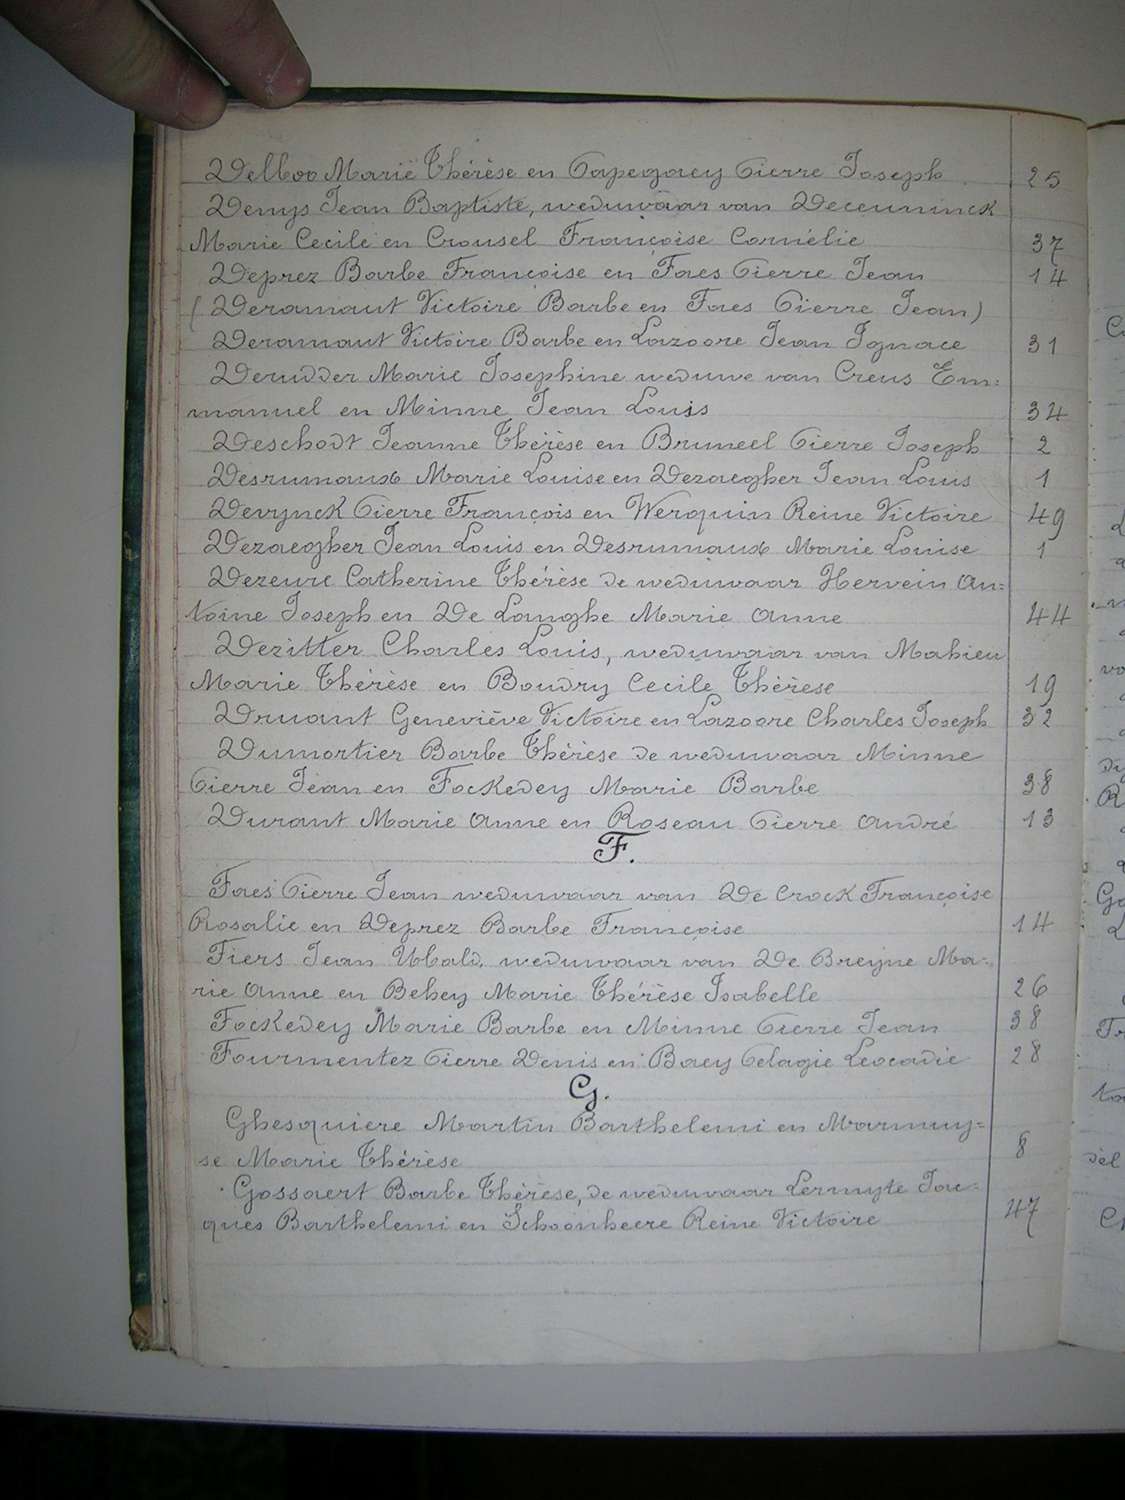 Delboo Marie Thérèse en Papegaey Pierre Joseph 25
Denys Jean Baptiste, weduwaar van Deceuninck
Marie Cecile en Crousel Françoise Cornélie 37
Deprez Barbe Françoise en Faes Pierre Jean 14
(Deramaut Victoire Barbe en Faes Pierre Jean)
Deramaut Victoire Barbe en Lazoore Jean Ignace 31
Derudder Marie Josephine weduwe van Creus Em=
manuel en Minne Jean Louis 34
Deschodt Jeanne Thérèse en Bruneel Pierre Joseph 2
Desrumaux Marie Louise en Dezaegher Jean Louis 1
Devynck Pierre François en Werquin Reine Victoire 49
Dezaegher Jean Louis en Desrumaux Marie Louise 1
Dezeure Catherine Thérèse de weduwaar Hervein An=
toine Joseph en De Langhe Marie Anne 44
Dezitter Charles Louis, weduwaar van Mahieu
Marie Thérèse en Boudry Cecile Thérèse 19
Druant Geneviève Victoire en Lazoore Charles Joseph 32
Dumortier Barbe Thérèse de weduwaar Minne
Pierre Jean en Fockedey Marie Barbe 38
Durant Marie Anne en Roseau Pierre André 13
F.
Faes Pierre Jean weduwaar van De Crock Françoise
Rosalie en Deprez Barbe Françoise 14
Fiers Jean Ubald, weduwaar van De Breyne Ma-
rie Anne en Behey Marie Thérèse Isabelle 26
Fockedey Marie Barbe en Minne Pierre Jean 38
Fourmentez Pierre Denis en Baey Pelagie Leocadie 28
G.
Ghesquiere Martin Barthelemi en Marmuy=
se Marie Thérèse 8
Gossaert Barbe Thérèse, de weduwaar Lermyte Jac-
ques Barthelemi en Schoonheere Reine Victoire 47